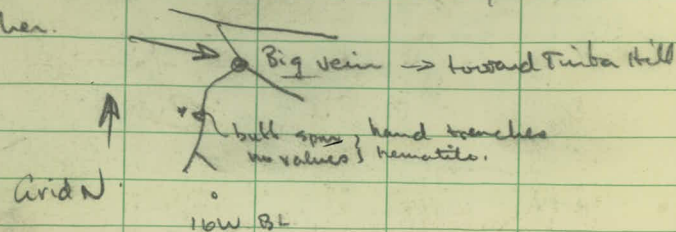 Big vein → toward Timba Hill
bull spar } hand trenches
no values } hematite.
Grid N.
16W BL